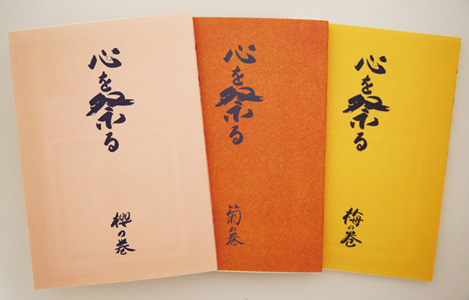 心を祭る
櫻の巻
心を祭る
菊の巻
心を祭る
梅の巻